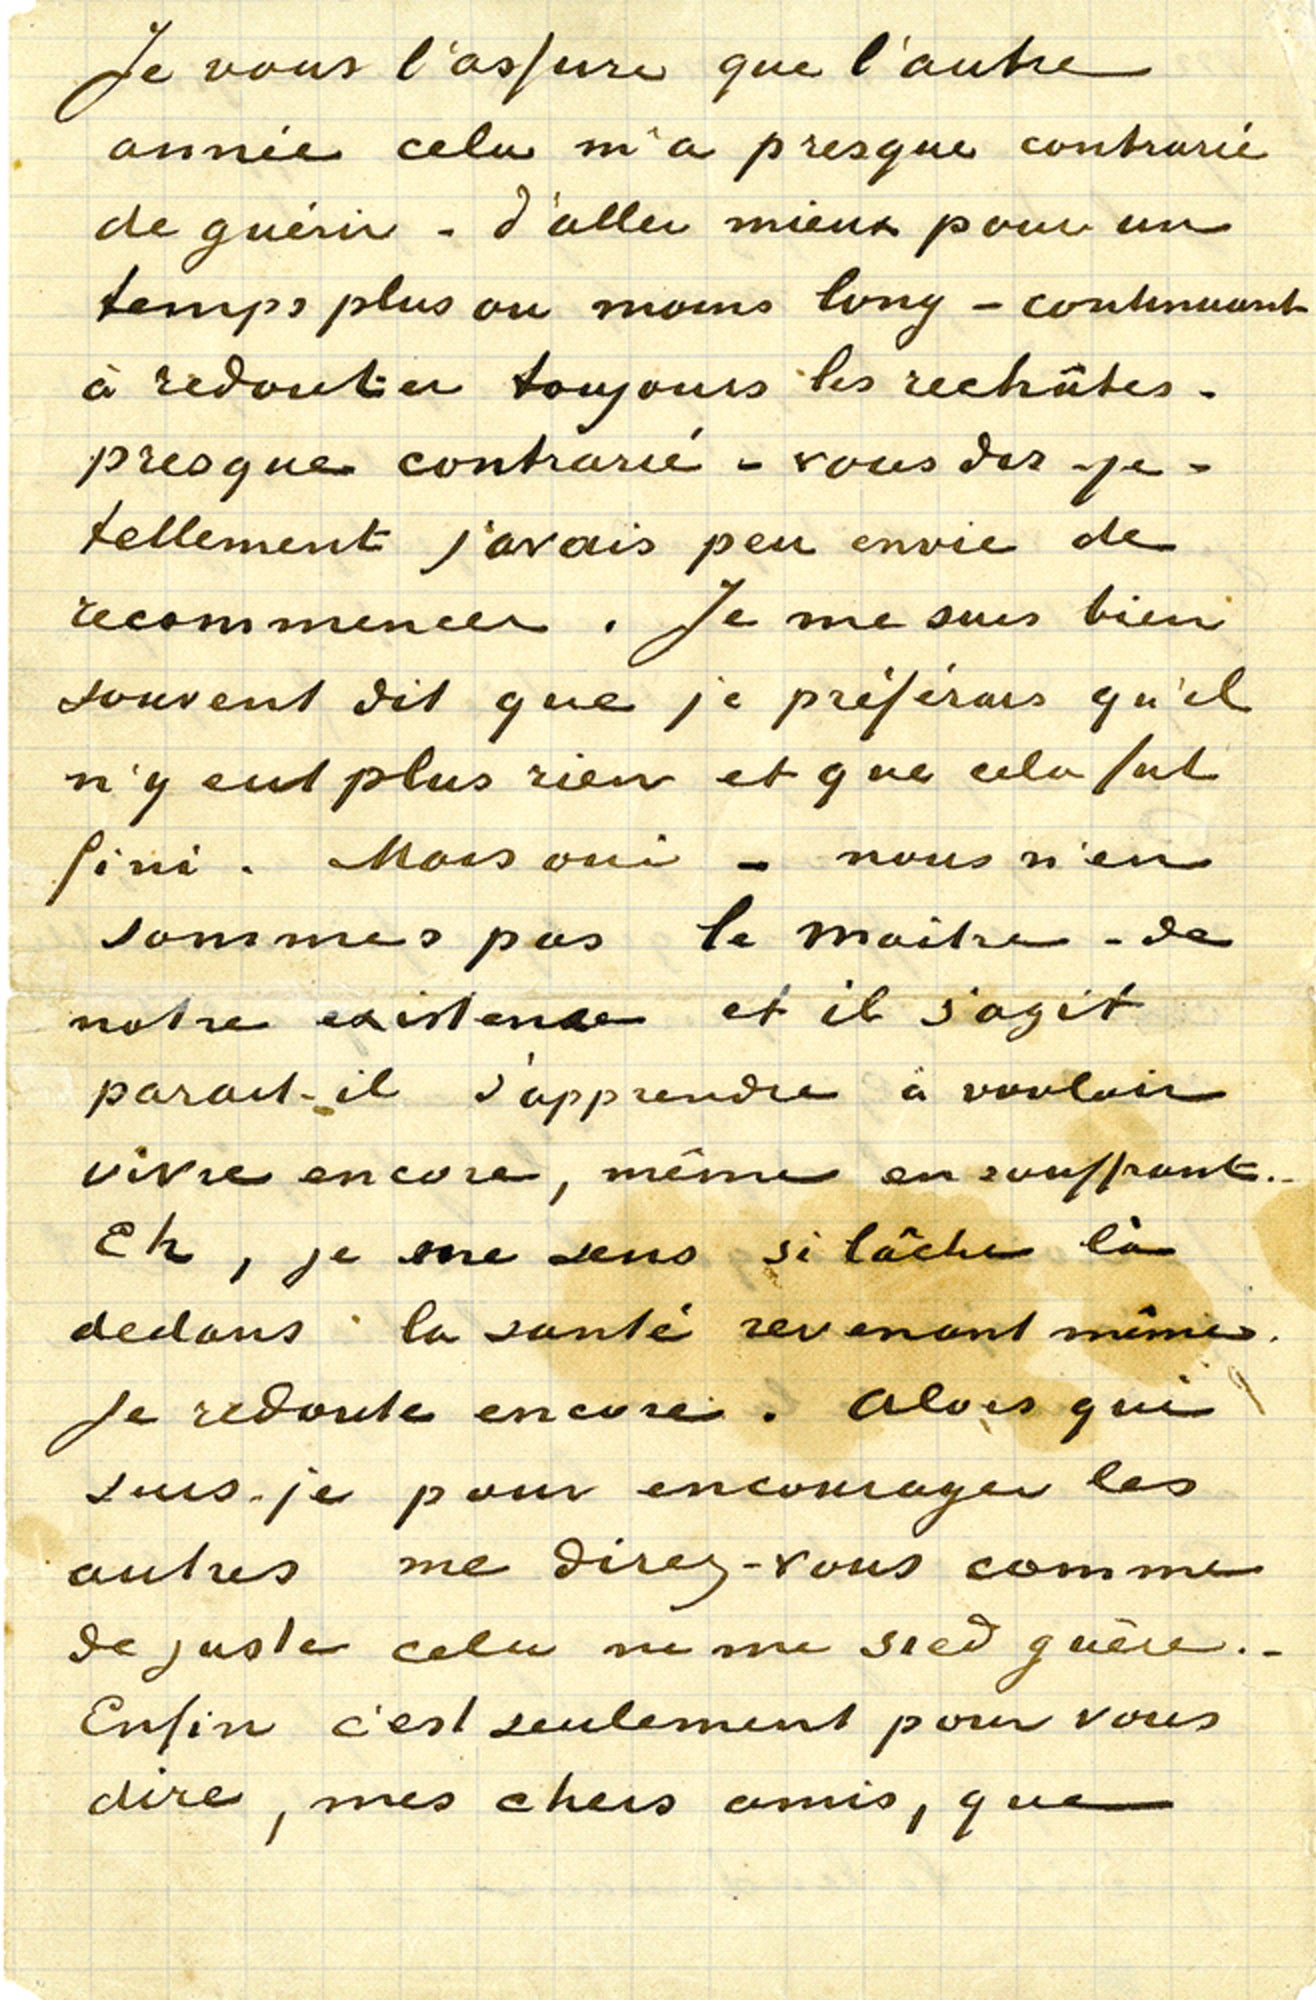 Je vous l'assure que l'autre
année cela m'a presque contrarié
de guérir - d'aller mieux pour un
temps plus ou moins long - continuant
à redouter toujours les rechûtes -
presque contrarié - vous dis-je -
tellement j'avais peu envie de
recommencer. Je me suis bien
souvent dit que je préférais qu'il
n'y eut plus rien et que cela fut
fini. Mais oui - nous n'en
sommes pas le maître - de
notre existence et il s'agit
parait-il d'apprendre à vouloir
vivre encore, même en souffrant.-
Eh, je me sens si lâche là
dedans la santé revenant même.
Je redoute encore. Alors qui
suis-je pour encourager les
autres me direz-vous comme
de juste cela ne me sied guère.-
Enfin c'est seulement pour vous
dire, mes chers amis, que